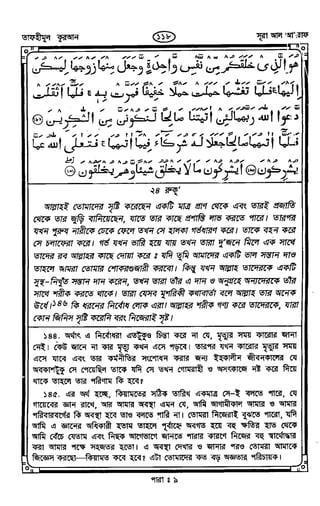 তাফহীমুল কুরআন
১১৮
সূরা আল আ'রাফ
هُوَ الَّذِي خَلَقَكُمْ مِنْ نَفْسٍ وَاحِدَةٍ وَجَعَلَ مِنْهَا زَوْجَهَا لِيَسْكُنَ
إِلَيْهَا ۚ فَلَمَّا تَغَشَّاهَا حَمَلَتْ حَمْلًا خَفِيفًا فَمَرَّتْ بِهِ ۚ فَلَمَّا أَثْقَلَتْ
دَعَوَا اللَّهَ رَبَّهُمَا لَئِنْ آتَيْتَنَا صَالِحًا لَنَكُونَنَّ مِنَ الشَّاكِرِينَ ﴿١٨٩﴾
فَلَمَّا آتَاهُمَا صَالِحًا جَعَلَا لَهُ شُرَكَاءَ فِيمَا آتَاهُمَا ۚ فَتَعَالَى اللَّهُ عَمَّا
يُشْرِكُونَ ﴿١٩٠﴾ أَيُشْرِكُونَ مَا لَا يَخْلُقُ شَيْئًا وَهُمْ يُخْلَقُونَ ﴿١٩١﴾
২৪ রুকূ'
আল্লাহই তোমাদের সৃষ্টি করেছেন একটি মাত্র প্রাণ থেকে এবং তারই প্রজাতি
থেকে তার জুড়ি বানিয়েছেন, যাতে তার কাছে প্রশান্তি লাভ করতে পারে। তারপর
যখন পুরুষ নারীকে ঢেকে ফেলে তখন সে হালকা গর্ভধারণ করে। তাকে বহন করে
সে চলাফেরা করে। গর্ভ যখন ভারি হয়ে যায় তখন তারা দু'জনে মিলে এক সাথে
তাদের রব আল্লাহর কাছে দোয়া করে ঃ যদি তুমি আমাদের একটি ভাল সন্তান দাও
তাহলে আমরা তোমার শোকরগুজারী করবো। কিন্তু যখন আল্লাহ তাদেরকে একটি
সুস্থ-নিখুঁত সন্তান দান করেন, তখন তারা তাঁর এ দান ও অনুগ্রহে অন্যদেরকে তাঁর
সাথে শরীক করতে থাকে। তারা যেসব মুশরিকী কথাবার্তা বলে আল্লাহ তার অনেক
ঊর্ধে।১৪৬ কি ধরনের নির্বোধ লোক এরা! আল্লাহর শরীক গণ্য করে তাদেরকে, যারা
কোন জিনিস সৃষ্টি করেনি বরং নিজেরাই সৃষ্ট।
১৪৪. অর্থাৎ এ নির্বোধেরা এতটুকুও চিন্তা করে না যে, মৃত্যুর সময় কারোর জানা
নেই। কেউ জানে না কার মৃত্যু কখন এসে পড়বে। তারপর যখন কারোর মৃত্যুর সময়
এসে যাবে এবং তার কর্মনীতির সংশোধন করার জন্য ইহকালীন জীবনকালের যে
অবকাশটুকু সে পেয়েছিল তাকে যদি সে তখন গোমরাহী ও অসৎকাজে নষ্ট করে দিয়ে
থাকে তাহলে তার পরিণাম কি হবে?
১৪৫. এর অর্থ হচ্ছে, কিয়ামতের সঠিক তারিখ একমাত্র সে-ই বলতে পারে, যে
গায়েবের জ্ঞান রাখে, আর আমার অবস্থা এমন যে, আমি আগামীকাল আমার ও আমার
পরিবারবর্গের কি অবস্থা হবে তাও বলতে পারি না। তোমরা নিজেরাই বুঝতে পারো, যদি
আমি এ জ্ঞানের অধিকারী হতাম তাহলে পূর্বাহ্নে অবগত হয়ে বহু ক্ষতির হাত থেকে
আমি বেঁচে যেতাম এবং নিছক আগেভাগে জানতে পারার কারণে নিজের বহু স্বার্থোদ্ধার
করা আমার পক্ষে সহজতর হতো। এ অবস্থা দেখার ও জানার পরও তোমরা আমাকে
জিজ্ঞেস করছো—কিয়ামত কবে হবে? এটা তোমাদের কত বড় অজ্ঞতার পরিচায়ক।
পারা ঃ ৯